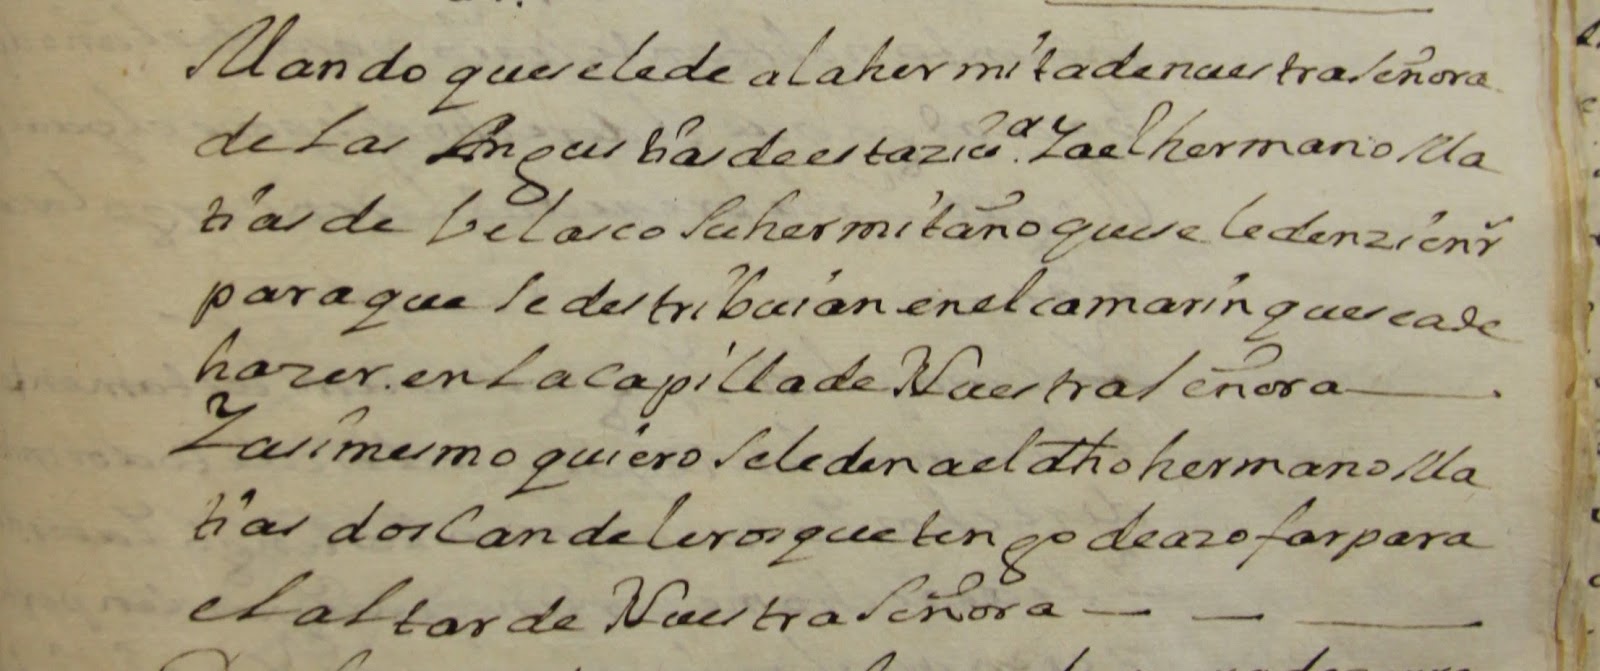 Mando que se le de a la hermita de nuestra señora
de las Angustias de esta ziu.ᵃ Y a el hermano Ma
tias de Velasco su hermitaño que se le den zien rˢ
para que se destribuian en el camarin que se a de
hazer. en la Capilla de Nuestra señora
Y asimesmo quiero se le den a el dho hermano Ma
tias dos Candeleros que tengo de azofar para
el altar de Nuestra Señora